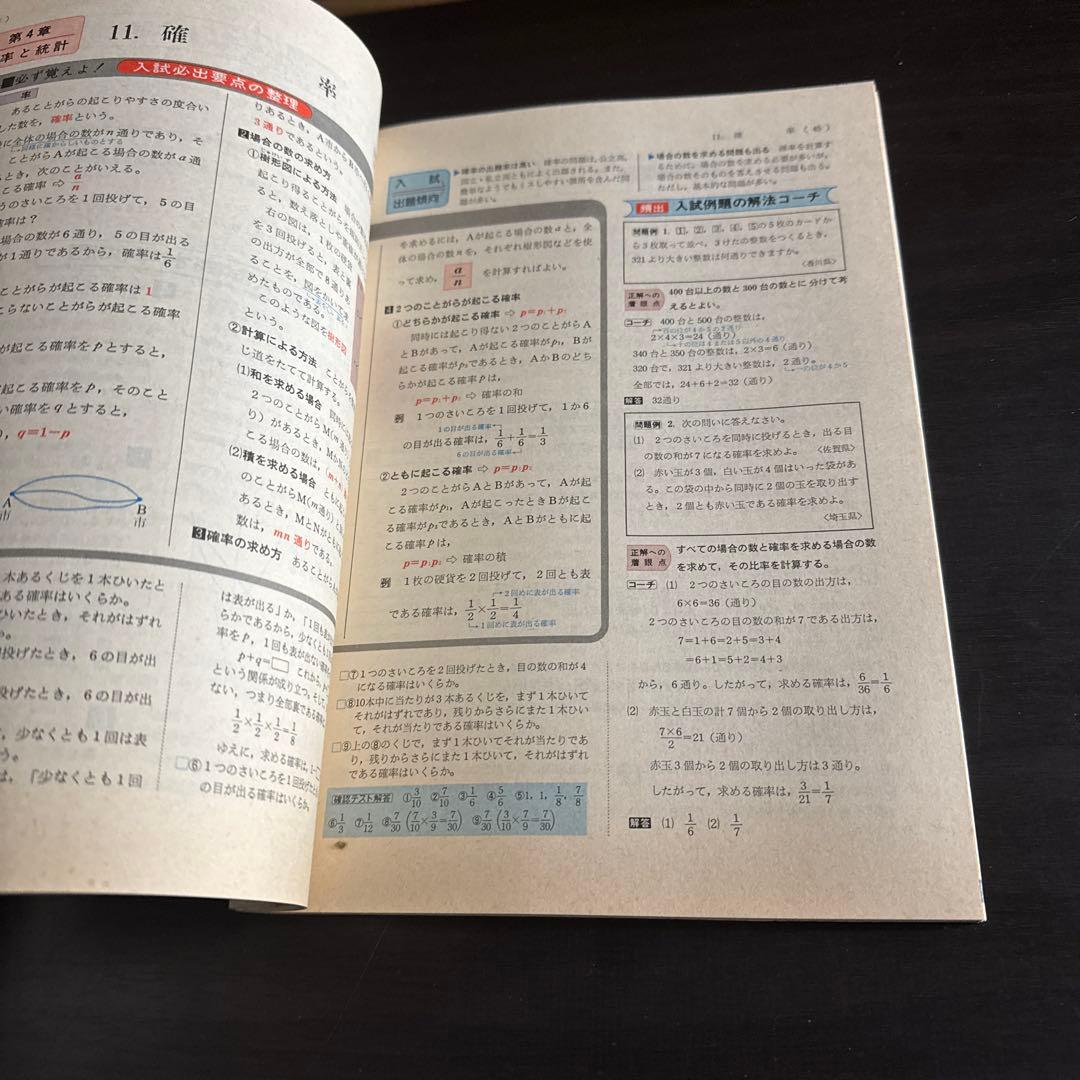 第4章
率と統計
11. 確
率
必ず覚えよ!
入試必出要点の整理
率
あることがらの起こりやすさの度合い
した数を,確率という。
に全体の場合の数がn通りであり,そ
同様に確からしいものとする
ことがらAが起こる場合の数がa通
るとき,次のことがいえる。
こる確率⇨a/n
うのさいころを1回投げて,5の目
率は?
場合の数が6通り,5の目が出る
が1通りであるから,確率は1/6
ことがらが起こる確率は1
こらないことがらが起こる確率
が起こる確率をpとすると,
起こる確率をp,そのこと
い確率をqとすると,
q=1-p
A
市
B
市
3通りであるという。
2 場合の数の求め方
①樹形図による方法
起こり得ることがらを
ると,数え落としや重複が
右の図は,1枚の硬貨
を3回投げると,表と裏
の出方が全部で8通りあ
ることを,図をかいて
めたものである。
このような図を樹形図
という。
②計算による方法
じ道をたてて計算する。
(1)和を求める場合
2つのことがらM(m通
り)があるとき,
こる場合の数は,
(2)積を求める場合
のことがらM(m通り)と
あるとき,MとNがともに
数は,mn通りである。
3 確率の求め方 あることがらA
本あるくじを1本ひいたと
ある確率はいくらか。
ひいたとき,それがはずれ
投げたとき,6の目が出
投げたとき,6の目が
て,少なくとも1回は表
は,「少なくとも1回
は表が出る」か,「1回も表が
らかであるから,少なくとも1
率をp,1回も表が出ない確率
p+q=□
という関係が成り立つ。そして
ない,つまり全部裏である確率
1/2×1/2×1/2=1/8
ゆえに,求める確率は,1-
□⑥1つのさいころを1回投げたとき
の目が出る確率はいくらか。
11. 確 率
入試
出題傾向
▶確率の出題率は高い 確率の問題は,公立高,
国立・私立高ともによく出題される。また,
簡単なようでもミスしやすい箇所を含んだ問
題が多い。
▶場合の数を求める問題も出る 確率を計算す
るために,場合の数を求める必要が多いが,
場合の数そのものを答えさせる問題も出る。
ただし,基本的な問題が多い。
を求めるには,Aが起こる場合の数aと,全
体の場合の数nを,それぞれ樹形図などを使
って求め,a/n を計算すればよい。
4 2つのことがらが起こる確率
①どちらかが起こる確率⇨p=p₁+p₂
同時には起こり得ない2つのことがらA
とBがあって,Aが起こる確率がp₁,Bが
起こる確率がp₂であるとき,AかBのどち
らかが起こる確率pは,
p=p₁+p₂ ⇨ 確率の和
例 1つのさいころを1回投げて,1か6
1の目が出る確率
の目が出る確率は,1/6+1/6=1/3
6の目が出る確率
②ともに起こる確率⇨p=p₁p₂
2つのことがらAとBがあって,Aが起
こる確率がp₁,Aが起こったときBが起こ
る確率がp₂であるとき,AとBがともに起
こる確率pは,
p=p₁p₂ ⇨ 確率の積
例 1枚の硬貨を2回投げて,2回とも表
2回めに表が出る確率
である確率は,1/2×1/2=1/4
1回めに表が出る確率
□⑦1つのさいころを2回投げたとき,目の数の和が4
になる確率はいくらか。
□⑧10本中に当たりが3本あるくじを,まず1本ひいて
それがはずれであり,残りからさらにまた1本ひい
て,それが当たりである確率はいくらか。
□⑨上の⑧のくじで,まず1本ひいてそれが当たりであ
り,残りからさらにまた1本ひいて,それがはずれ
である確率はいくらか。
確認テスト解答 ①3/10 ②7/10 ③1/6 ④5/6 ⑤1,1,1/8,7/8
⑥1/3 ⑦1/12 ⑧7/30(7/10×3/9=7/30) ⑨7/30(3/10×7/9=7/30)
頻出 入試例題の解法コーチ
問題例 1. [1],[2],[3],[4],[5]の5枚のカードか
ら3枚取って並べ,3けたの整数をつくるとき,
321より大きい整数は何通りできますか。
〈香川県〉
正解への着眼点 400台以上の数と300台の数とに分けて考
えるとよい。
コーチ 400台と500台の整数は,
百の位が4か5の2通り
2×4×3=24(通り)
十の位は4または5以外の4通り
340台と350台の整数は,2×3=6(通り)
320台で,321より大きい整数は,2通り。
一の位が4か5
全部では,24+6+2=32(通り)
解答 32通り
問題例 2. 次の問いに答えなさい。
(1) 2つのさいころを同時に投げるとき,出る目
の数の和が7になる確率を求めよ。〈佐賀県〉
(2) 赤い玉が3個,白い玉が4個はいった袋があ
る。この袋の中から同時に2個の玉を取り出す
とき,2個とも赤い玉である確率を求めよ。
〈埼玉県〉
正解への着眼点 すべての場合の数と確率を求める場合の数
を求めて,その比率を計算する。
コーチ (1) 2つのさいころの目の数の出方は,
6×6=36(通り)
2つのさいころの目の数の和が7である出方は,
7=1+6=2+5=3+4
=6+1=5+2=4+3
から,6通り。したがって,求める確率は,6/36=1/6
(2) 赤玉と白玉の計7個から2個の取り出し方は,
7×6/2=21(通り)
赤玉3個から2個の取り出し方は3通り。
したがって,求める確率は,3/21=1/7
解答 (1) 1/6 (2) 1/7